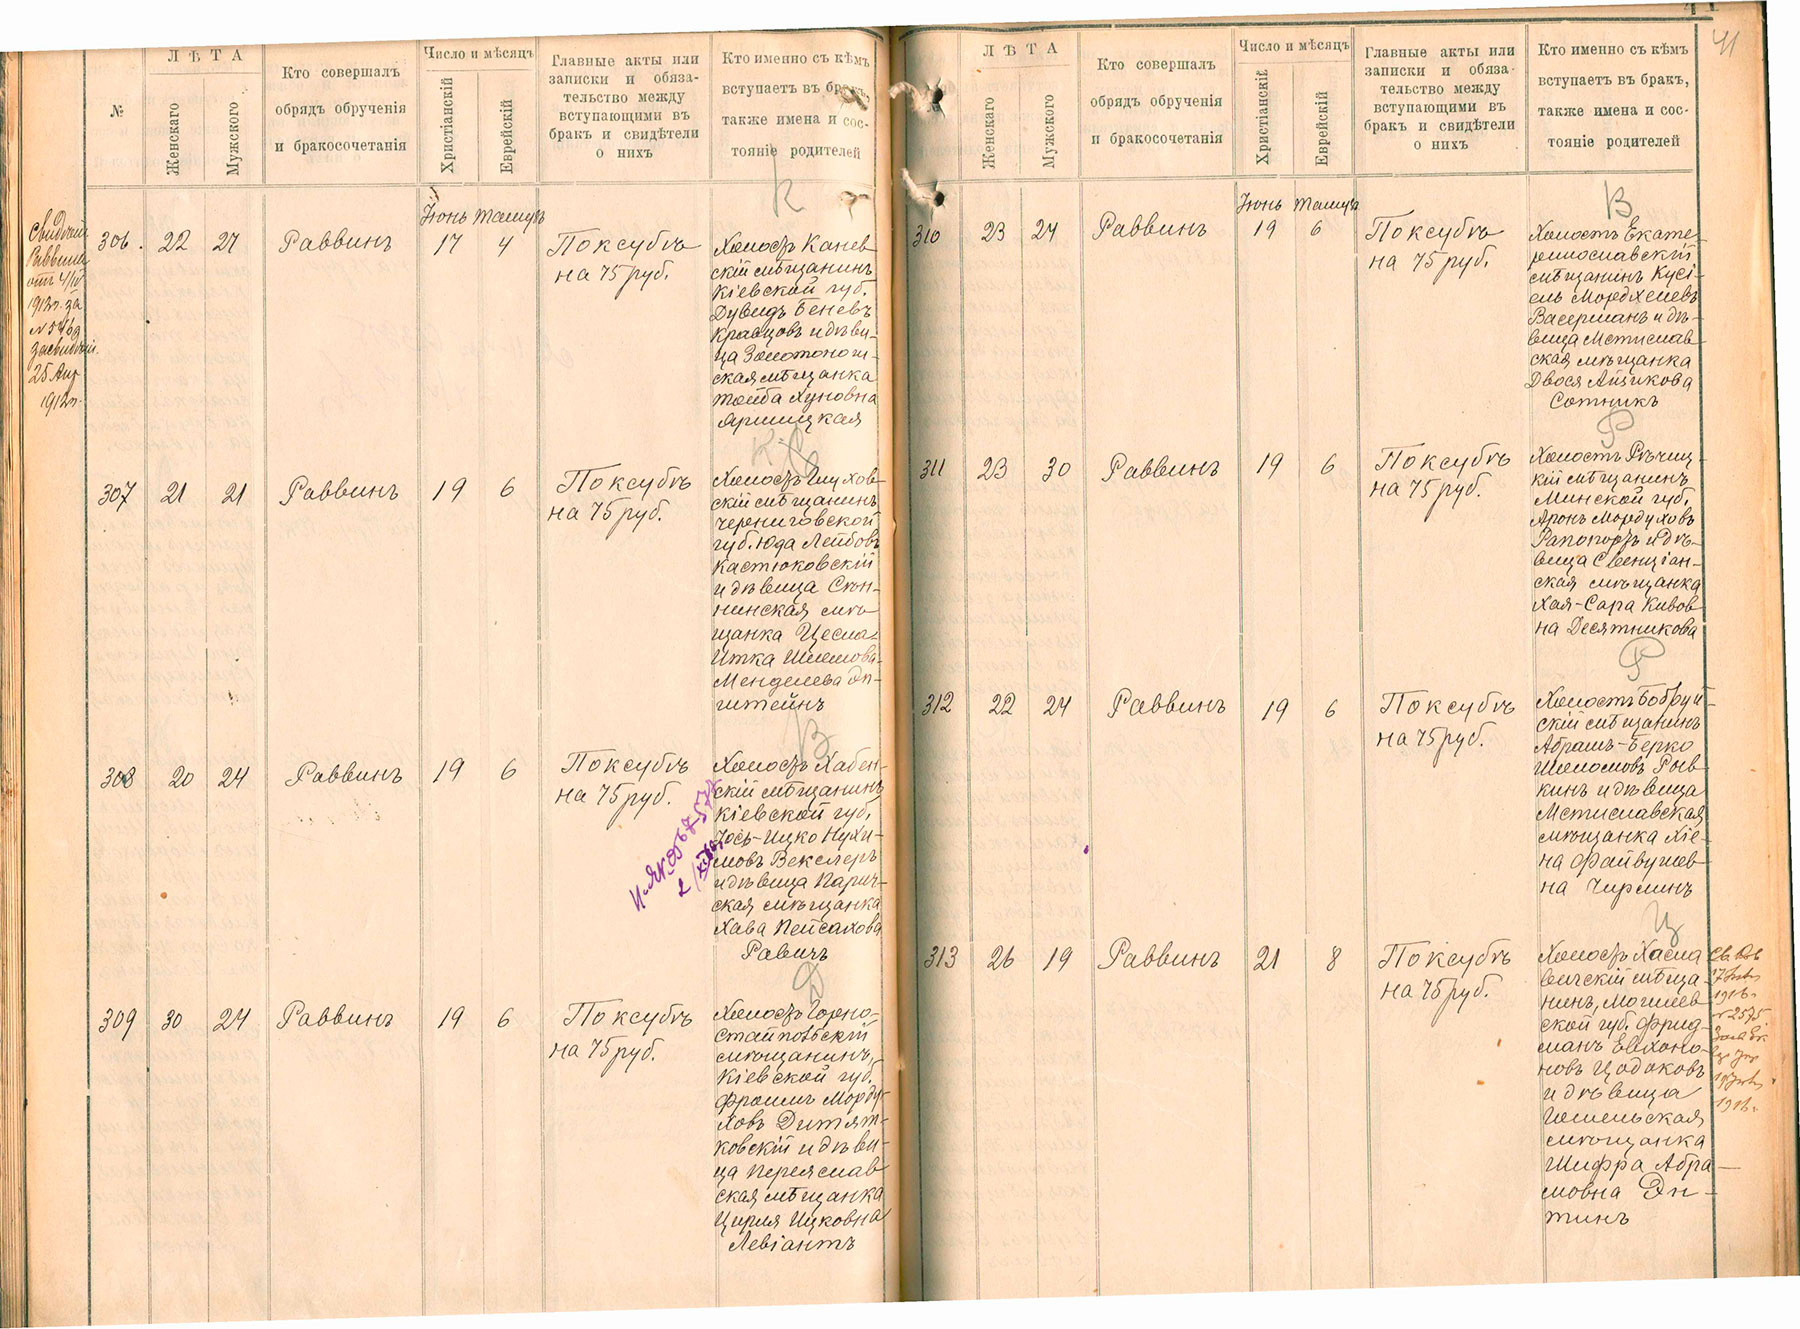 ЛѢТА
№
Женскаго
Мужского
Кто совершалъ
обрядъ обрученія
и бракосочетанія
Число и мѣсяцъ
Христіанскій
Еврейскій
Главные акты или
записки и обяза-
тельство между
вступающими въ
бракъ и свидѣтели
о нихъ
Кто именно съ кѣмъ
вступаетъ въ бракъ,
также имена и сос-
тояніе родителей
К
Іюнь Тамузъ
306. 22 27 Раввинъ 17 4
По ксубѣ
на 75 руб.
Холостъ Канев-
скій мѣщанинъ
Кіевской губ.
Дувидъ Беневъ
Кравцовъ и дѣви-
ца Золотоног-
ская мѣщанка
Тойба Хуновна
25 Апр
1912г.
К
307 21 21 Раввинъ 19 6
По ксубѣ
на 75 руб.
Холостъ Глухов-
скій мѣщанинъ,
Черниговской
губ. Юда Лейбовъ
Кастюковскій
и дѣвица Сѣн-
нинская мѣ-
щанка Цесла-
Итка Шлемова-
Менделева Эп-
штейнъ
В
308 20 24 Раввинъ 19 6
По ксубѣ
на 75 руб.
Холостъ Хабен-
скій мѣщанинъ
Кіевской губ.
Іось-Ицко Нухи-
мовъ Векслеръ
и дѣвица Парич-
ская мѣщанка
Хава Пейсахова
Равичъ
Д
309 30 24 Раввинъ 19 6
По ксубѣ
на 75 руб.
Холостъ Горно-
стайпольскій
мѣщанинъ,
Кіевской губ.
Фроимъ Морду-
ховъ Дитят-
ковскій и дѣви-
ца Переяслав-
ская мѣщанка
Цирля Ицковна
Левіантъ
41
ЛѢТА
Женскаго
Мужского
Кто совершалъ
обрядъ обрученія
и бракосочетанія
Число и мѣсяцъ
Христіанскій
Еврейскій
Главные акты или
записки и обяза-
тельство между
вступающими въ
бракъ и свидѣтели
о нихъ
Кто именно съ кѣмъ
вступаетъ въ бракъ,
также имена и сос-
тояніе родителей
В
Іюнь Тамузъ
310 23 24 Раввинъ 19 6
По ксубѣ
на 75 руб.
Холостъ Екате-
ринославскій
мѣщанинъ Кусі-
ель Мордхелевъ
Васерманъ и дѣ-
вица Мстислав-
ская мѣщанка
Двося Айзикова
Сотникъ
Р
311 23 30 Раввинъ 19 6
По ксубѣ
на 75 руб.
Холостъ Рѣчиц-
кій мѣщанинъ
Минской губ.
Аронъ Мордуховъ
Рапопортъ и дѣ-
вица Свенціан-
ская мѣщанка
Хая-Сара Кивов-
на Десятникова
Р
312 22 24 Раввинъ 19 6
По ксубѣ
на 75 руб.
Холостъ Бобруй-
скій мѣщанинъ
Абрамъ-Берко
Шоломовъ Рыв-
кинъ и дѣвица
Мстиславская
мѣщанка Хіе-
на Файвушев-
на Чирлинъ
Ц
313 26 19 Раввинъ 21 8
По ксубѣ
на 75 руб.
Холостъ Хасла-
вичскій мѣща-
нинъ, Могилев-
ской губ. Фрид-
манъ Евхоно-
новъ Цодоковъ
и дѣвица
Гомельская
мѣщанка
Шифра Абра-
мовна Эп-
тинъ
1916г.
№ 2575
1916г.